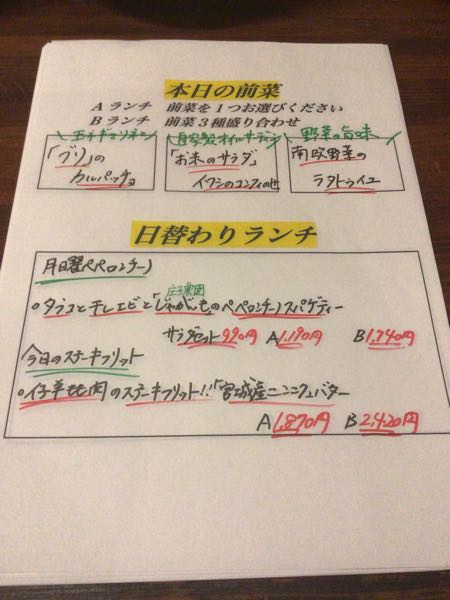 本日の前菜
Aランチ 前菜を1つお選びください
Bランチ 前菜3種盛り合わせ
自家製オイルサーディン 野菜の旨味
「ブリ」のカルパッチョ
「お米のサラダ」イワシのコンフィのせ
南欧野菜のラタトゥイユ
日替わりランチ
月曜ペペロンチーノ
庄子農園
○タラコと干しエビと「じゃがいも」のペペロンチーノスパゲティー
サラダセット990円 A1,190円 B1,740円
今日のステーキフリット
○仔羊モモ肉のステーキフリット!!「宮城産ニンニク」バター
A1,870円 B2,420円